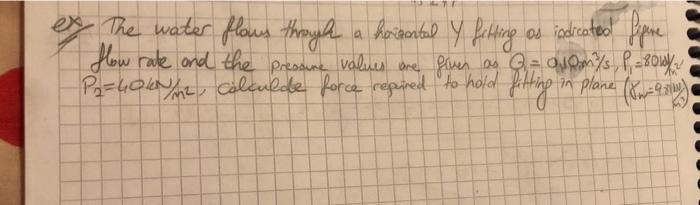 ex The water flows through a horizontal Y fitting as indicated figure
flow rate and the pressure values are given as Q = 0,10 m³/s, P₁=80kN/m²
P₂=40kN/m², calculate force required to hold fitting in plane (γw=9.81kN/m³)